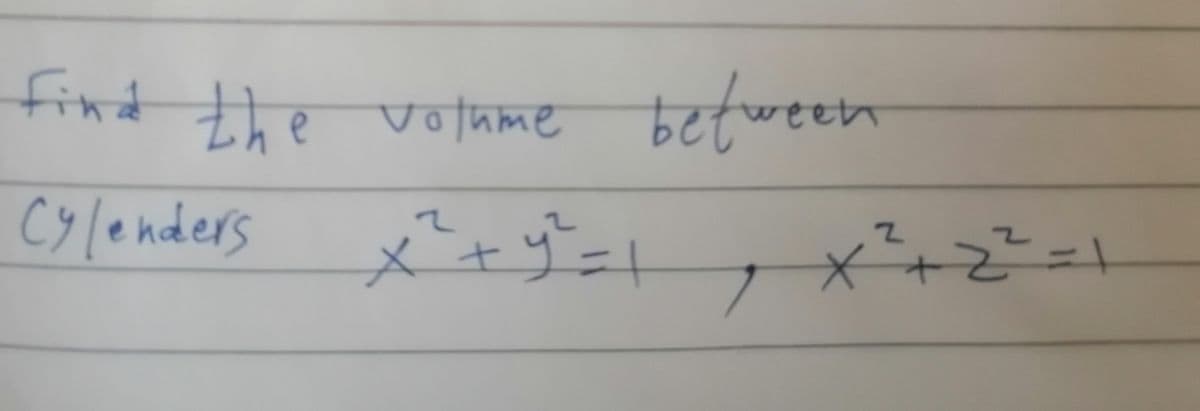 find the volume between
Cylenders x² + y² = 1 , x² + z² = 1